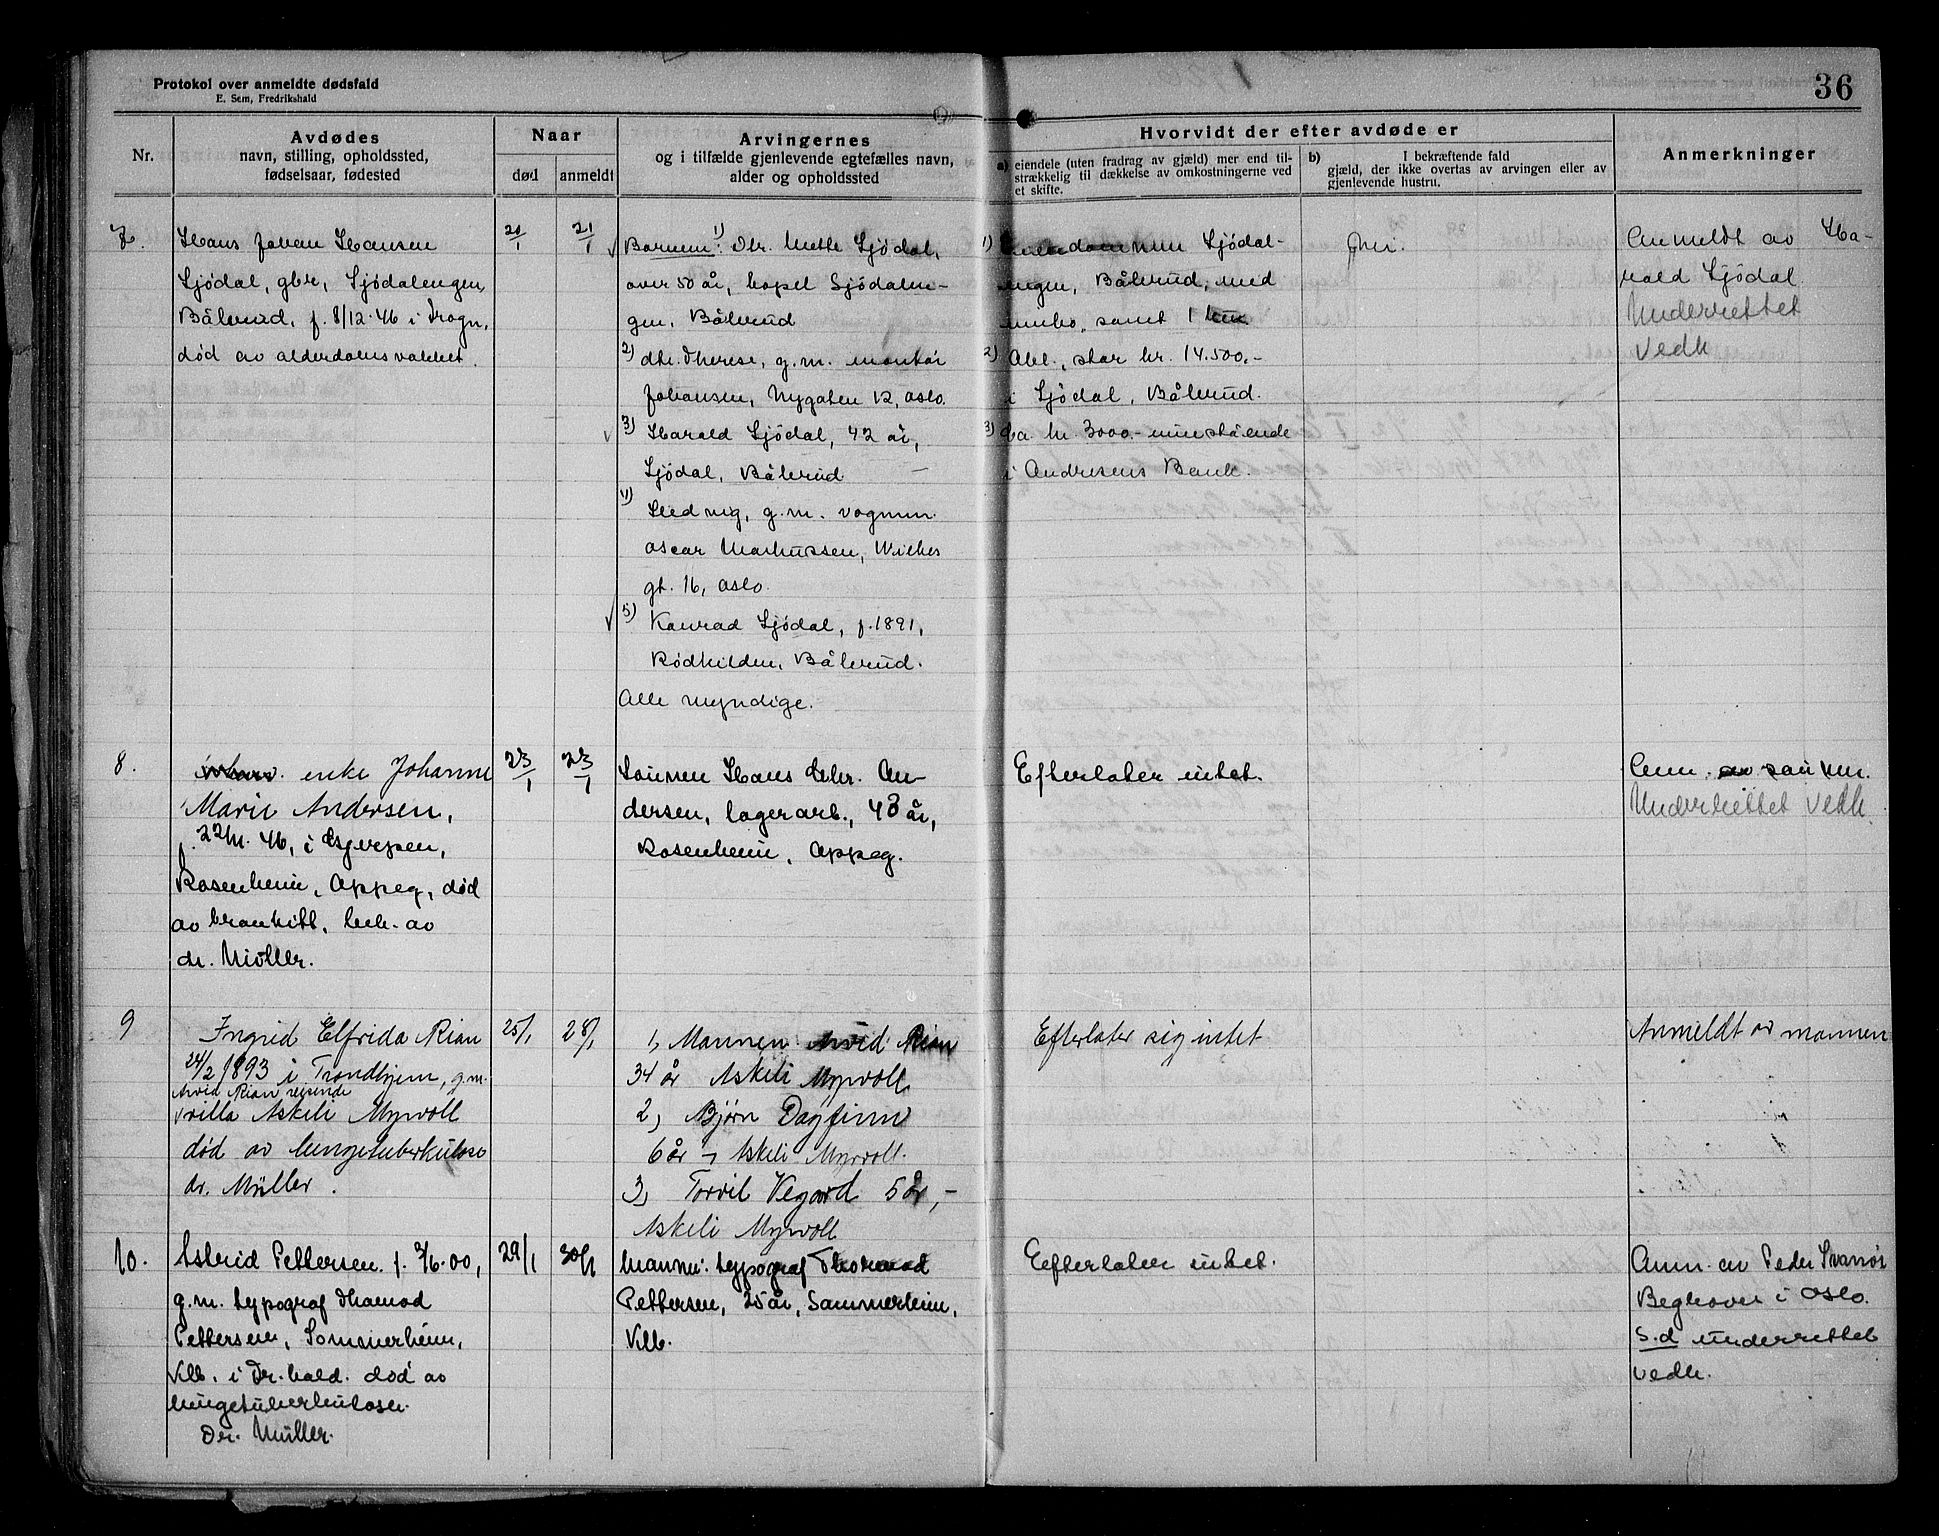 Protokol over anmeldte dødsfald
E. Sem, Fredrikshald
36
Nr.
Avdødes
navn, stilling, opholdssted,
fødselsaar, fødested
Naar
død
anmeldt
Arvingernes
og i tilfælde gjenlevende egtefælles navn,
alder og opholdssted
Hvorvidt der efter avdøde er
a) eiendele (uten fradrag av gjæld) mer end til-
strækkelig til dækkelse av omkostningerne ved
et skifte.
b) I bekræftende fald
gjæld, der ikke overtas av arvingen eller av
gjenlevende hustru.
Anmerkninger
7.
Hans Johan Hansen
Sjødal, gbr, Sjødalengen,
Bålerud, f. 8/12·46 i Frogn,
død av alderdomsvakhet.
20/1
21/1
Barnene: 1) Dtr. Mette Sjødal,
over 50 år, bopel Sjødalen-
gen, Bålerud
2) dtr. Therese, g.m. montør
Johansen, Nygaten 12, Oslo.
3) Harald Sjødal, 42 år,
Sjødal, Bålerud
4) Hedvig, g.m. vognm.
Oscar Markussen, Wilhes
gt. 16, Oslo.
5) Konrad Sjødal, f. 1891,
Rødkilden, Bålerud.
Alle myndige.
1) Eiendommen Sjødal-
engen, Bålerud, med
innbo, samt 1 ku
2) Obl., stor kr. 14.500.-
i Sjødal, Bålerud.
3) Ca. kr. 3000.- innestående
i Andresens Bank.
Anmeldt av Ha-
rald Sjödal
Underrettet
vedk
8.
enke Johanne
Marie Andersen,
f. 46, i Gjerpen,
Rosenheim, Oppeg, død
av bronkitt, beh. av
dr. Müller.
23/1
23/1
Sønnen Hans Chr. An-
dersen, lagerarb., 43 år,
Rosenheim, Oppeg.
Efterlater intet.
Anm. av sønnen.
Underrettet vedk.
9
Ingrid Elfrida Rian
24/2 1893 i Trondhjem, g.m.
Arvid Rian reisende
villa Askeli Myrvoll
død av lungetuberkulose
dr. Müller.
25/1
28/1
1, Mannen Arvid Rian
34 år Askeli Myrvoll
2, Bjørn Dagfinn
6 år, Askeli Myrvoll.
3, Torvil Vegard 5 år,-
Askeli Myrvoll
Efterlater sig intet
Anmeldt av mannen
10.
Astrid Pettersen f. 3/6.00,
g.m. typograf Thomod
Pettersen, Sommerheim,
Klb. i Fr.hald. død av
lungetuberkulose.
Dr. Müller.
29/1
30/1
Manne: typograf Thormod
Pettersen, 25 år, Sommerheim,
Klb.
Efterlater intet.
Anm. av Peder Svanøs
Begraver i Oslo.
S.d underrettet
vedk.